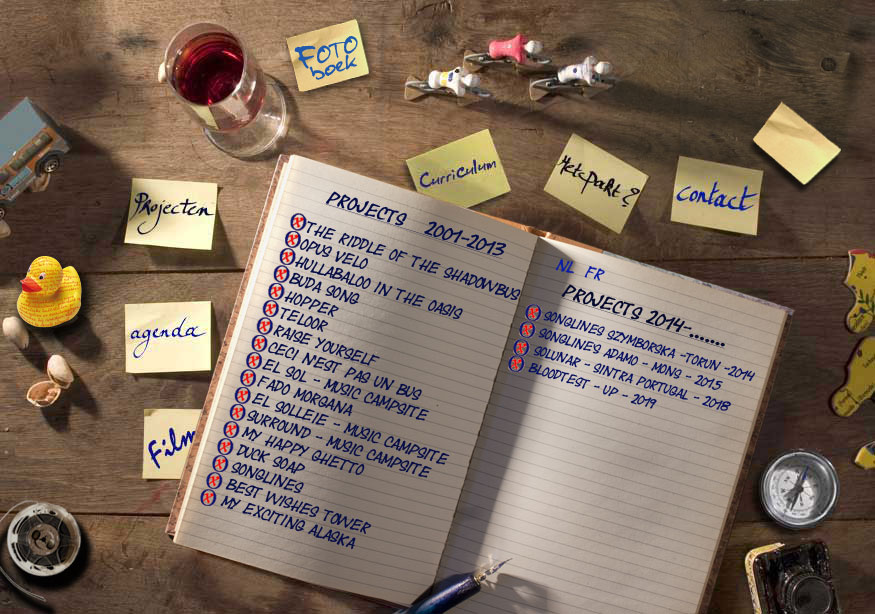 FOTO
boek
Curriculum
Metspakt?
contact
Projecten
agenda
Film
PROJECTS 2001-2013
X THE RIDDLE OF THE SHADOWBUS
X OPUS VELO
X HULLABALOO IN THE OASIS
X BUDA SONG
X HOPPER
X TELOOR
X RAISE YOURSELF
X CECI NEST PAS UN BUS
X EL SOL - MUSIC CAMPSITE
X FADO MORGANA
X EL SOLLEIE - MUSIC CAMPSITE
X SURROUND - MUSIC CAMPSITE
X MY HAPPY GHETTO
X DUCK SOAP
X SONGLINES
X BEST WISHES TOWER
X MY EXCITING ALASKA
NL FR
PROJECTS 2014-.......
X SONGLINES SZYMBORSKA -TORUN -2014
X SONGLINES ADAMO - MONS - 2015
X SOLUNAR - SINTRA PORTUGAL - 2018
X BLOODTEST - UP - 2019